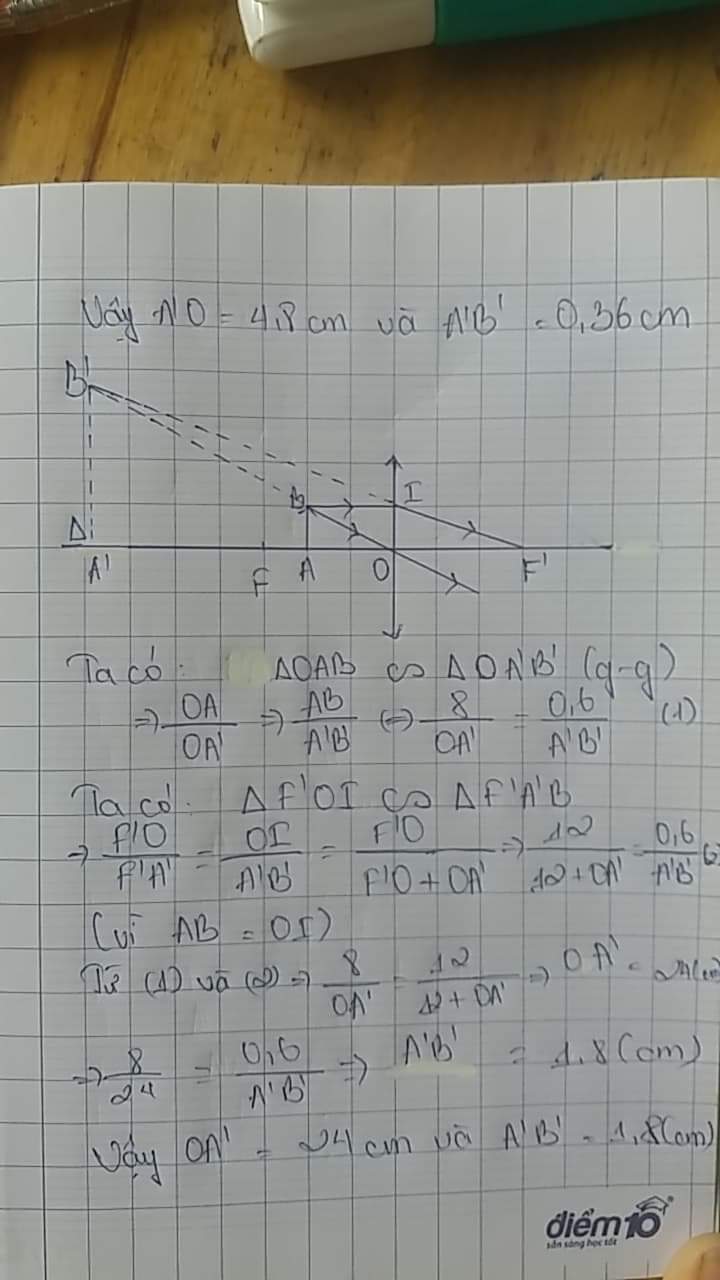 Vậy A'O = 4,8 cm và A'B' = 0,36 cm
B'
B I
Δ
A' F A O F'
Ta có: ΔOAB ∽ ΔOA'B' (g-g)
⇒ OA/OA' ⇒ AB/A'B' ⇔ 8/OA' = 0,6/A'B' (1)
Ta có: ΔF'OI ∽ ΔF'A'B
⇒ F'O/F'A' = OI/A'B' = F'O/F'O + OA' ⇒ 12/12 + OA' = 0,6/A'B' (2)
(vì AB = OI)
Từ (1) và (2) ⇒ 8/OA' = 12/12 + OA' ⇒ OA' = 24(cm)
⇒ 8/24 = 0,6/A'B' ⇒ A'B' = 1,8 (cm)
Vậy OA' = 24 cm và A'B' = 1,8(cm)
điểm10
sẵn sàng học tốt